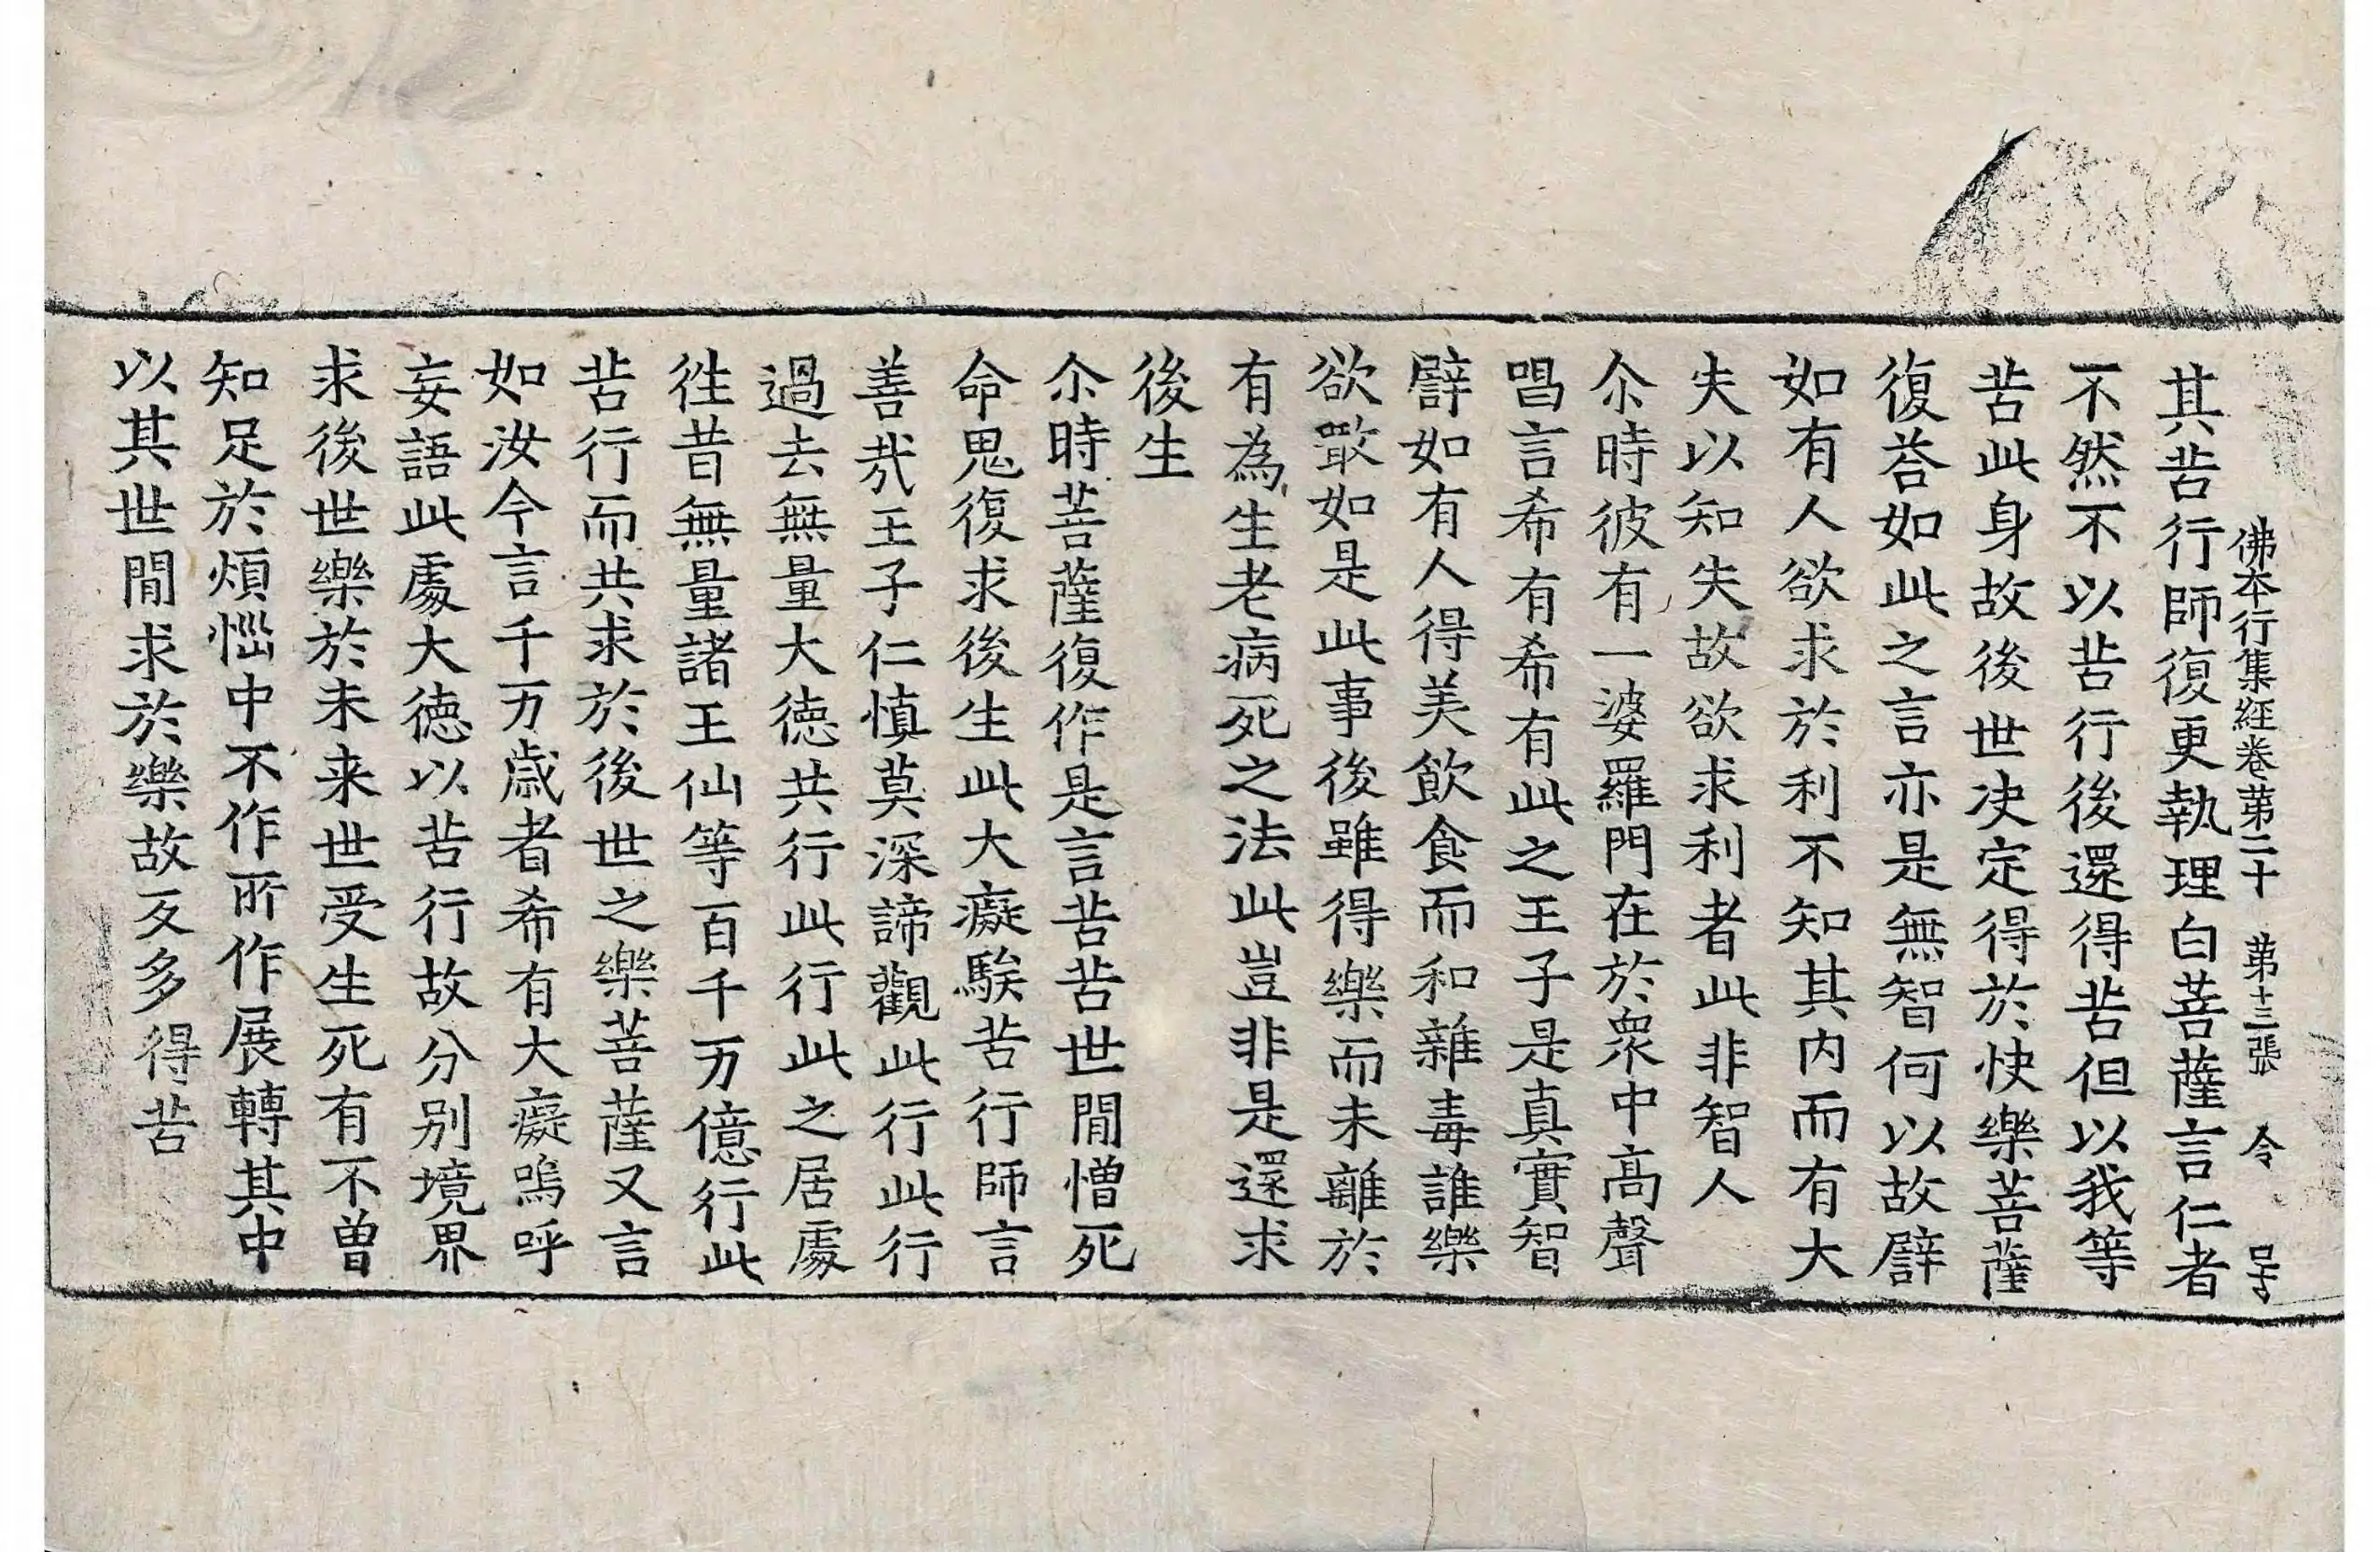 佛本行集経卷苐二十 苐十三張 令 号
其苦行師復更執理白菩薩言仁者
不然不以苦行後還得苦但以我等
苦此身故後世决定得於快樂菩薩
復荅如此之言亦是無智何以故譬
如有人欲求於利不知其內而有大
失以知失故欲求利者此非智人
尒時彼有一婆羅門在於衆中高聲
唱言希有希有此之王子是真實智
譬如有人得美飲食而和雜毒誰樂
欲噉如是此事後雖得樂而未離於
有為生老病死之法此豈非是還求
後生
尒時菩薩復作是言苦苦世間憎死
命思復求後生此大癡騃苦行師言
善哉王子仁慎莫深諦觀此行此行
過去無量大德共行此行此之居處
徃昔無量諸王仙等百千万億行此
苦行而共求於後世之樂菩薩又言
如汝今言千万歲者希有大癡嗚呼
妄語此處大德以苦行故分别境界
求後世樂於未来世受生死有不曾
知足於煩惱中不作所作展轉其中
以其世間求於樂故反多得苦